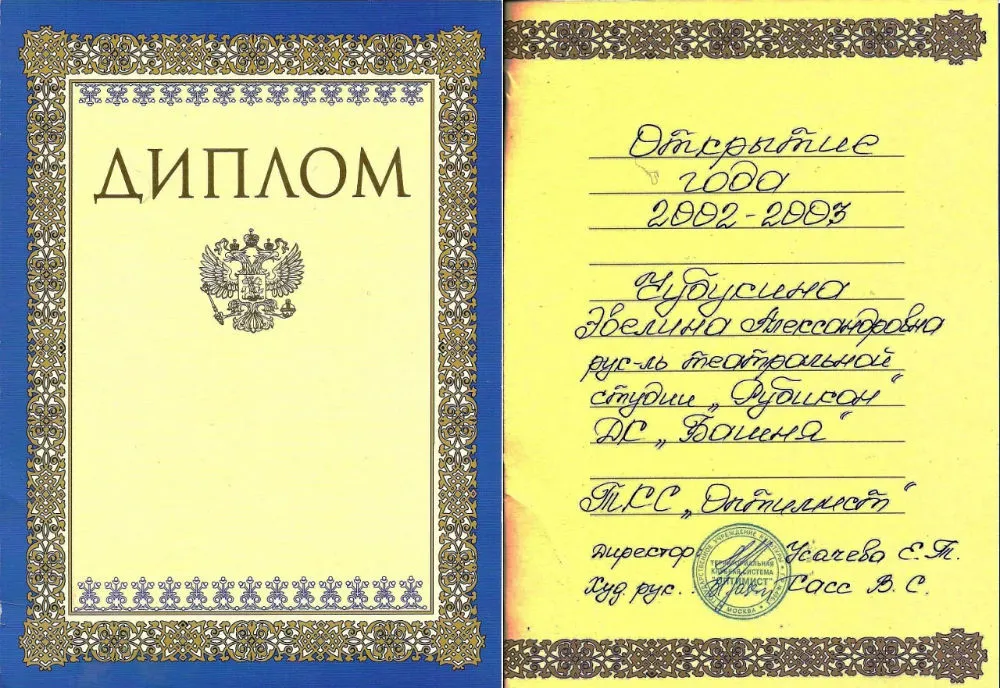 ДИПЛОМ
Открытие
года
2002-2003
Чубукина
Эвелина Александровна
рук-ль театральной
студии „Рубикон“
ДС „Башня“
ТКС „Оптимист“
Директор: Усачева Е.Т.
Худ. рук.: Тасс В. С.
ТЕРРИТОРИАЛЬНАЯ
КЛУБНАЯ СИСТЕМА
"ОПТИМИСТ"
МОСКВА